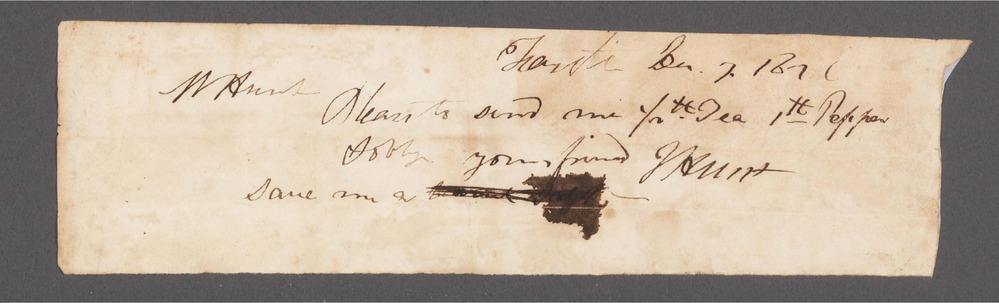 Dec. 7. 187
W Hunt
Please to send me 1/2 lb. Tea 1 lb Pepper
& oblige your friend J Hunt
Save me a